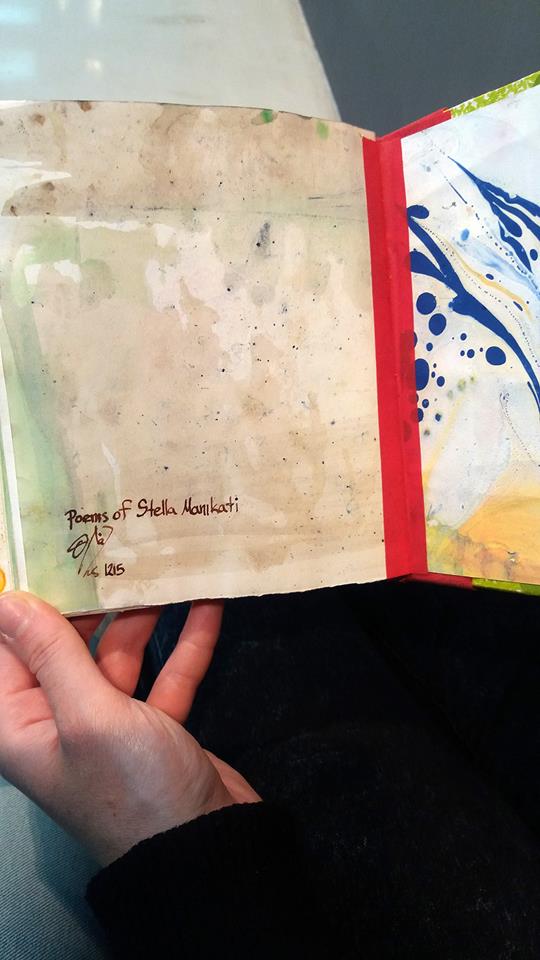 Poems of Stella Manikati
1215